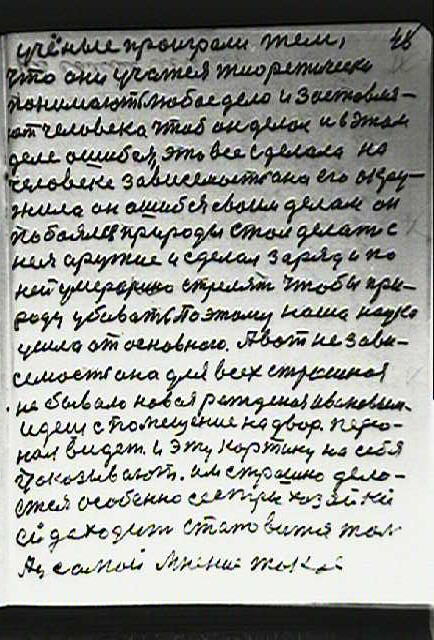 учёные проиграли тем, 48
что они учатся теоретически
понимают любое дело и заставля-
ют человека чтоб он делал и в этом
деле ошибся, это все сделала на
человеке зависемость она его окру-
жила он ошибся своим делам он
побоялся природы стал делать с
нея аружие и сделал заряд и по
ней умерорино стрелят чтобы при-
роду убивать. Поэтому наша наука
ушла от основного. А вот не зави-
семость она для всех страшная
не бывало новая рожденая ивановым.
идеш с помещение надвор. перо-
нал видет. и эту картину на себя
показывают. им страшно дело-
ется особенно сестри хозяйки
ей доходит становится там
Ад самой мнение такой